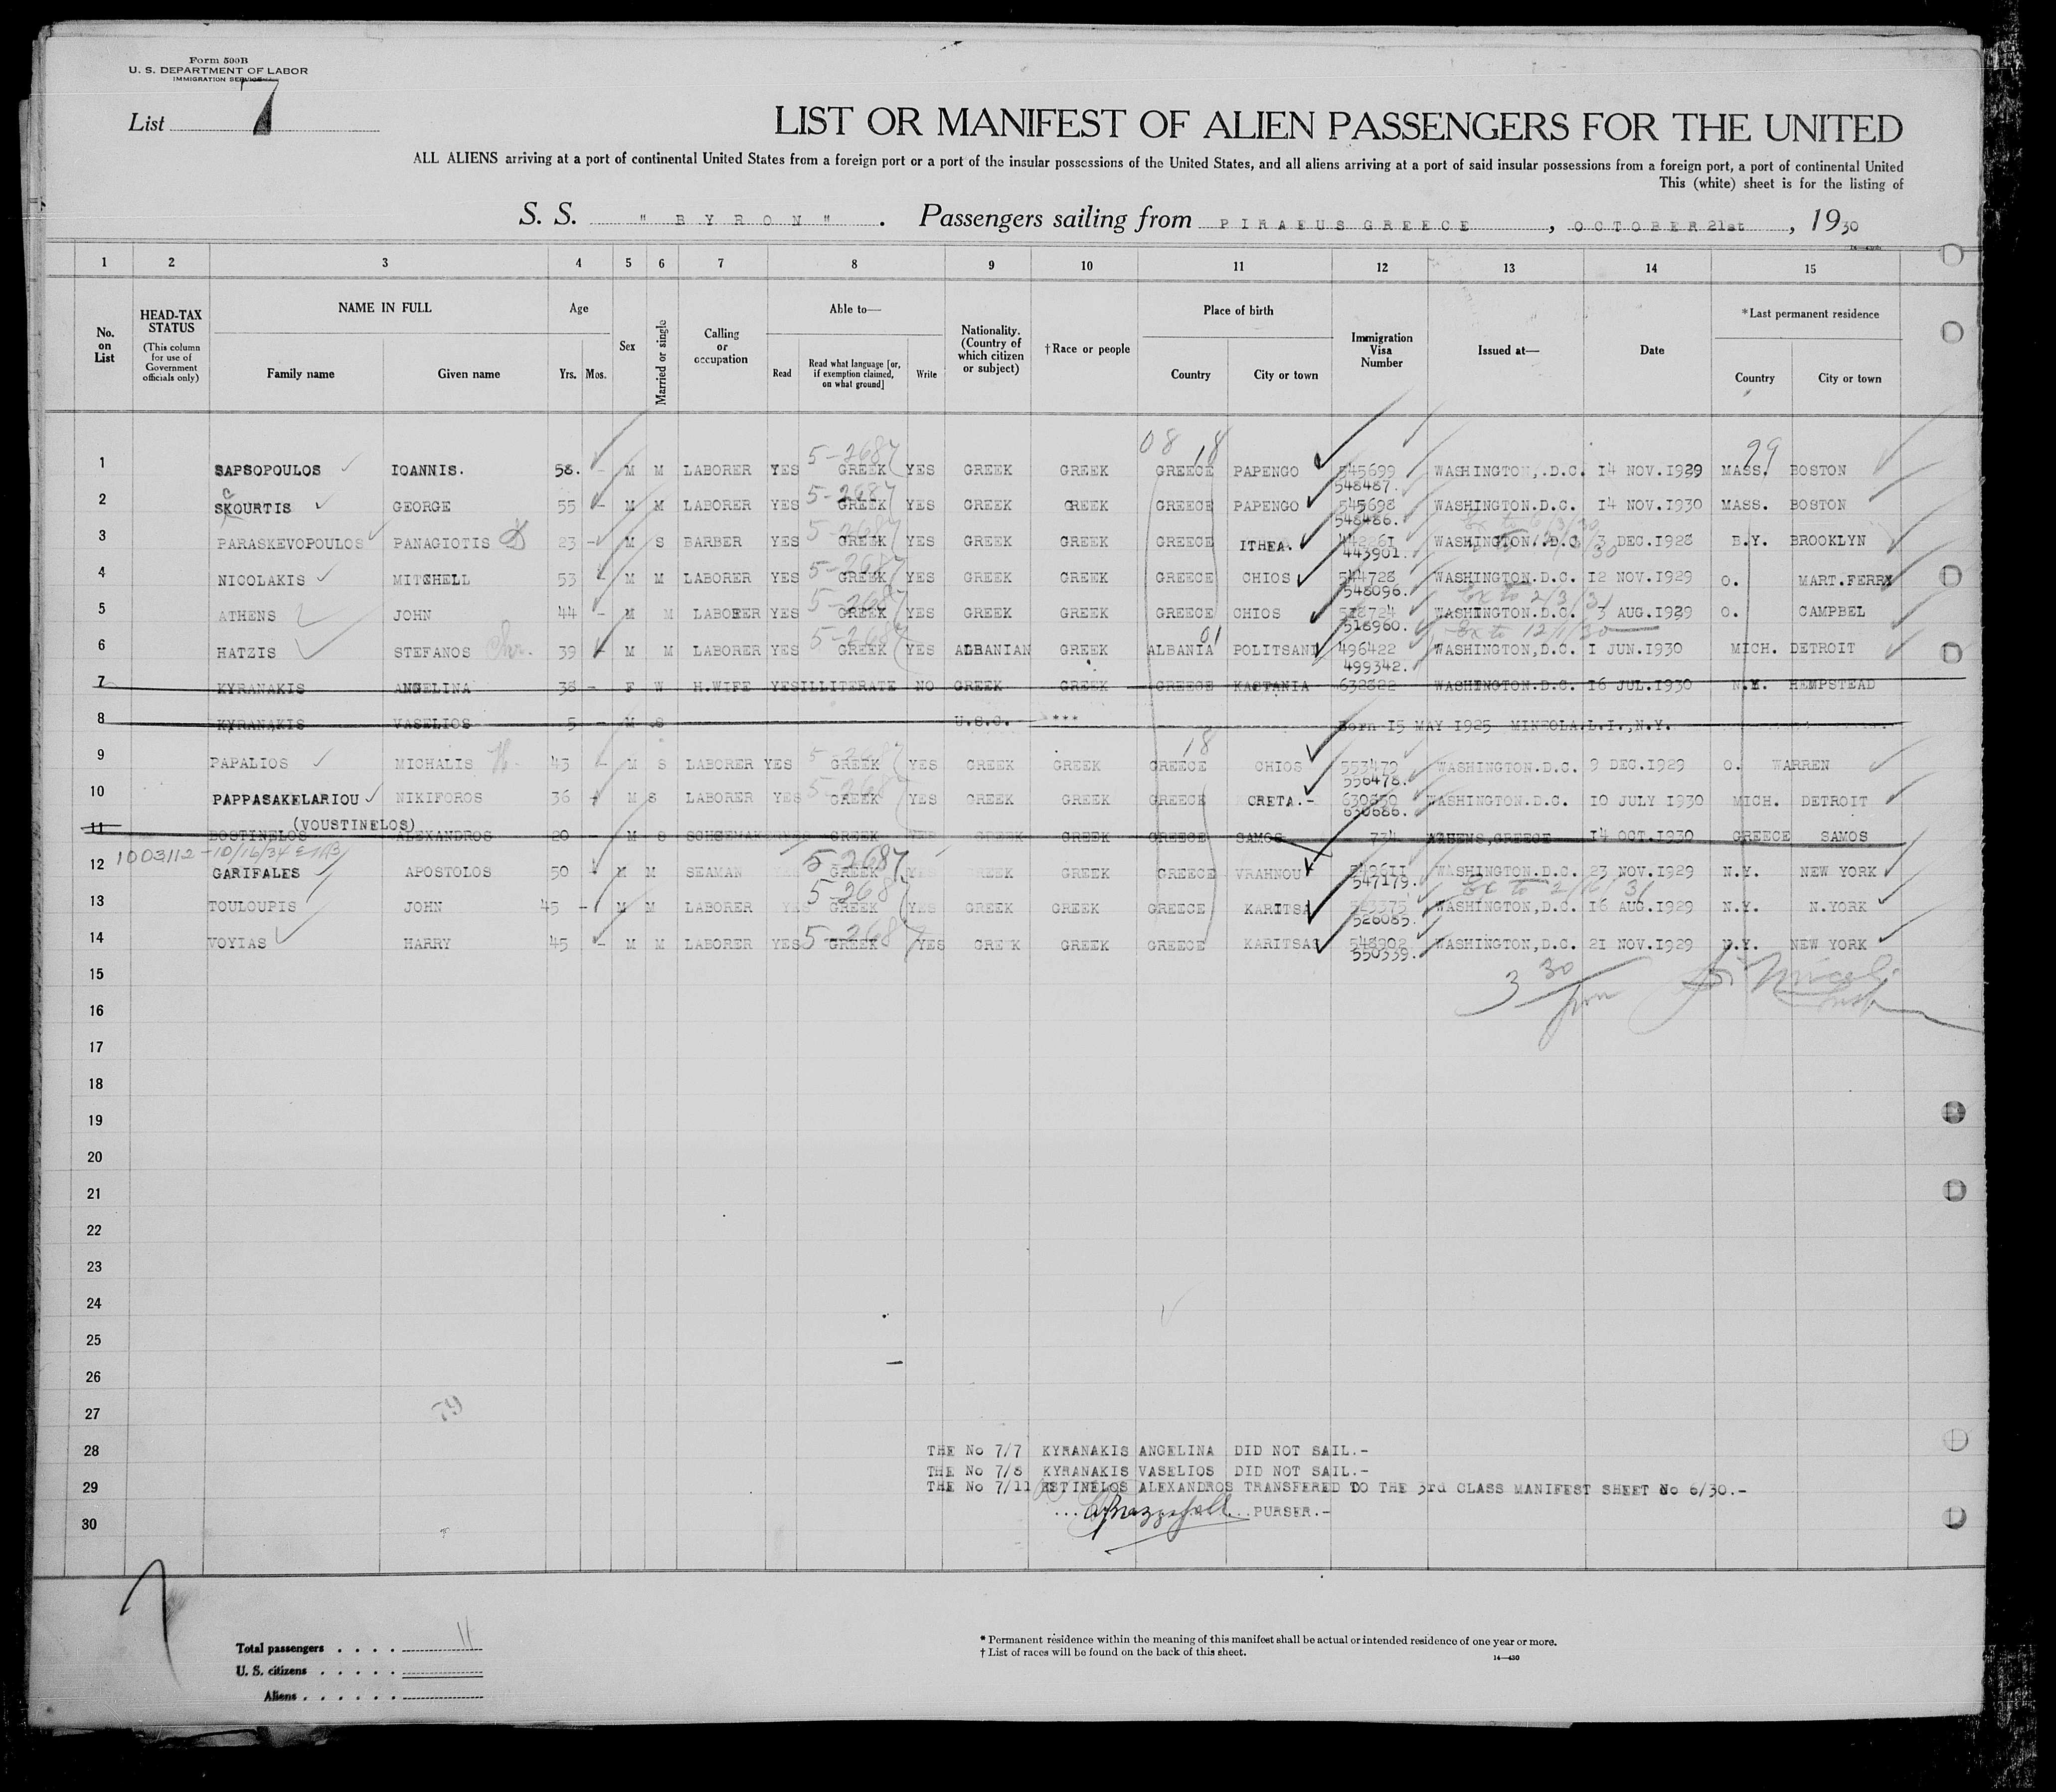 Form 500B
U. S. DEPARTMENT OF LABOR
IMMIGRATION SERVICE
List 7
LIST OR MANIFEST OF ALIEN PASSENGERS FOR THE UNITED
ALL ALIENS arriving at a port of continental United States from a foreign port or a port of the insular possessions of the United States, and all aliens arriving at a port of said insular possessions from a foreign port, a port of continental United
This (white) sheet is for the listing of
S. S. " BYRON " . Passengers sailing from PIRAEUS GREECE , OCTOBER 21st , 1930
1 2 3 4 5 6 7 8 9 10 11 12 13 14 15
No. on List
HEAD-TAX STATUS
(This column for use of Government officials only)
NAME IN FULL
Family name Given name
Age
Yrs. Mos.
Sex
Married or single
Calling or occupation
Able to—
Read
Read what language [or, if exemption claimed, on what ground]
Write
Nationality. (Country of which citizen or subject)
† Race or people
Place of birth
Country City or town
Immigration Visa Number
Issued at—
Date
* Last permanent residence
Country City or town
08 18 29
1 SAPSOPOULOS IOANNIS. 58. - M M LABORER YES 5-2687 GREEK YES GREEK GREEK GREECE PAPENGO 545699 WASHINGTON,.D.C. 14 NOV.1929 MASS. BOSTON
548487.
2 SKOURTIS GEORGE 55 - M M LABORER YES 5-2687 GREEK YES GREEK GREEK GREECE PAPENGO 545698 WASHINGTON.D.C. 14 NOV.1930 MASS. BOSTON
548486.
3 PARASKEVOPOULOS PANAGIOTIS 23 - M S BARBER YES 5-2687 GREEK YES GREEK GREEK GREECE ITHEA. 442261 WASHINGTON.D.C 3 DEC.1928 B.Y. BROOKLYN
443901.
4 NICOLAKIS MITSHELL 53 - M M LABORER YES 5-2687 GREEK YES GREEK GREEK GREECE CHIOS 544728 WASHINGTON.D.C. 12 NOV.1929 O. MART.FERRY
548096. Ex to 2/3/31
5 ATHENS JOHN 44 - M M LABORER YES 5-2687 GREEK YES GREEK GREEK GREECE CHIOS 518724 WASHINGTON.D.C. 3 AUG.1929 O. CAMPBEL
518960. Ex to 12/1/30
01
6 HATZIS STEFANOS 39 - M M LABORER YES 5-2687 GREEK YES ALBANIAN GREEK ALBANIA POLITSANI 496422 WASHINGTON,D.C. 1 JUN.1930 MICH. DETROIT
499342.
7 KYRANAKIS ANGELINA 38 - F W H.WIFE YES ILLITERATE NO GREEK GREEK GREECE KASTANIA 632822 WASHINGTON.D.C. 16 JUL.1930 N.Y. HEMPSTEAD
8 KYRANAKIS VASELIOS 5 - M S U.S.C. *** Born 15 MAY 1925 MINEOLA.L.I.,N.Y.
18
9 PAPALIOS MICHALIS 43 - M S LABORER YES 5-2687 GREEK YES GREEK GREEK GREECE CHIOS 553479 WASHINGTON.D.C. 9 DEC.1929 O. WARREN
556478.
10 PAPPASAKELARIOU NIKIFOROS 36 - M S LABORER YES 5-2687 GREEK YES GREEK GREEK GREECE CRETA.- 630650 WASHINGTON.D.C. 10 JULY 1930 MICH. DETROIT
630686.
(VOUSTINELOS)
11 BOSTINELOS ALEXANDROS 20 - M S SCHOEMAK YES GREEK YES GREEK GREEK GREECE SAMOS 734 ATHENS,GREECE 14 OCT.1930 GREECE SAMOS
1003112 - 10/16/34
12 GARIFALES APOSTOLOS 50 - M M SEAMAN YES 5-2687 GREEK YES GREEK GREEK GREECE VRAHNOU WASHINGTON.D.C. 23 NOV.1929 N.Y. NEW YORK
547179. Ex to 2/16/31
13 TOULOUPIS JOHN 45 - M M LABORER YES 5-2687 GREEK YES GREEK GREEK GREECE KARITSA WASHINGTON,D.C. 16 AUG.1929 N.Y. N.YORK
526085.
14 VOYIAS HARRY 45 - M M LABORER YES 5-2687 GREEK YES GREEK GREEK GREECE KARITSAS 548902 WASHINGTON,D.C. 21 NOV.1929 N.Y. NEW YORK
550339.
15
3 30 pm
16
17
18
19
20
21
22
23
24
25
26
27
79
28 THE No 7/7 KYRANAKIS ANGELINA DID NOT SAIL.-
THE No 7/8 KYRANAKIS VASELIOS DID NOT SAIL.-
29 THE No 7/11 BSTINELOS ALEXANDROS TRANSFERED TO THE 3rd CLASS MANIFEST SHEET No 6/30.-
30 PURSER.-
Total passengers . . . . 11
U. S. citizens . . . . .
Aliens . . . . . .
* Permanent residence within the meaning of this manifest shall be actual or intended residence of one year or more.
† List of races will be found on the back of this sheet.
14—430